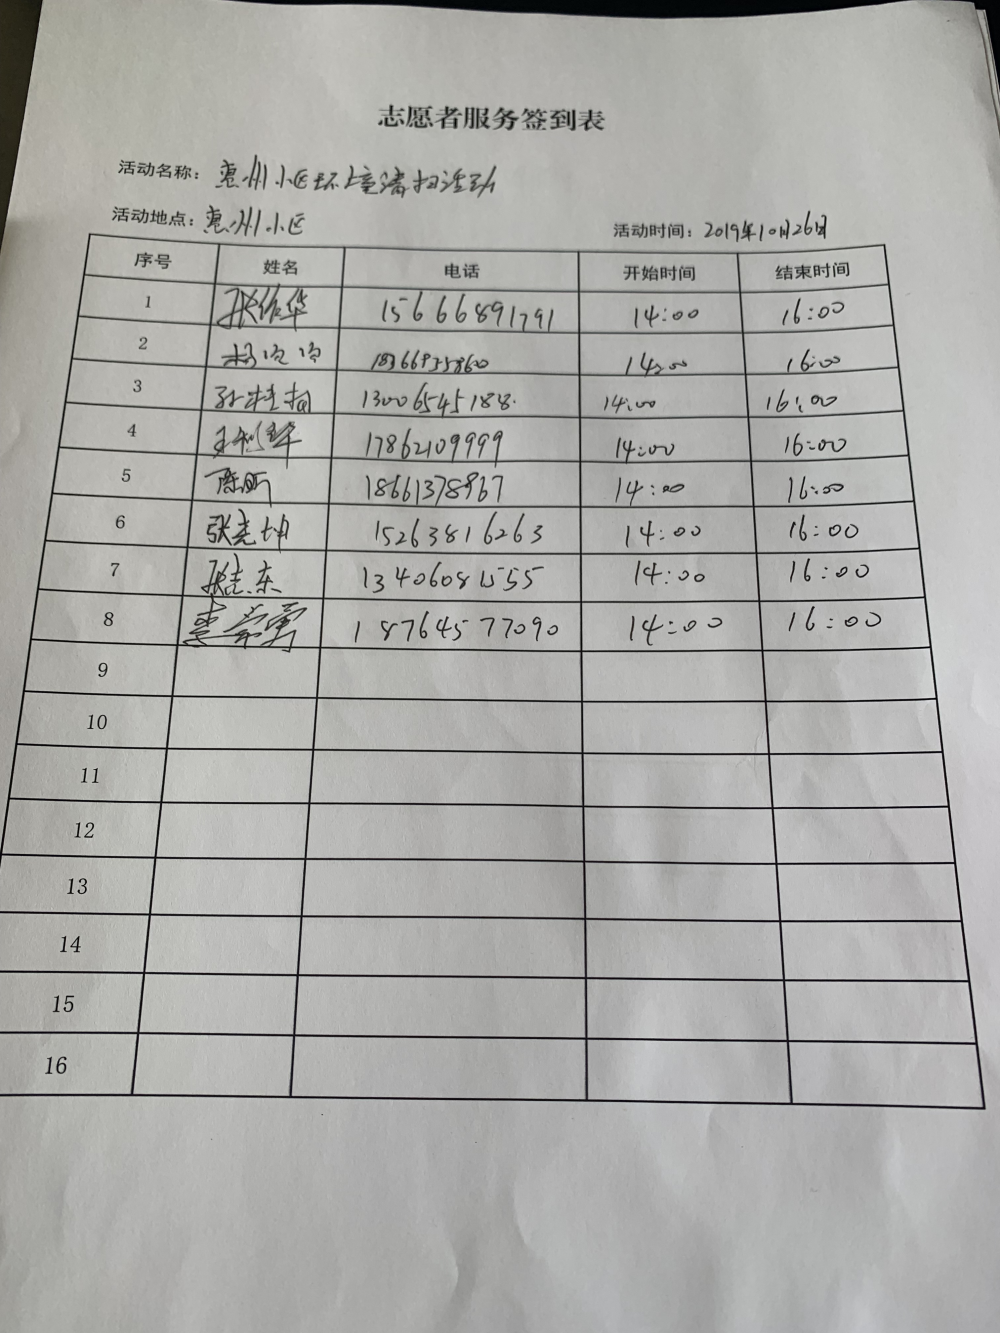 志愿者服务签到表
活动名称：惠州小区环境清扫活动
活动地点：惠州小区 活动时间：2019年10月26日
序号 姓名 电话 开始时间 结束时间
1 15666891791 14:00 16:00
2 14:00 16:00
3 13006545188 14:00 16:00
4 17862109999 14:00 16:00
5 陈昕 18661378967 14:00 16:00
6 张亮坤 15263816263 14:00 16:00
7 14:00 16:00
8 18764577090 14:00 16:00
9
10
11
12
13
14
15
16